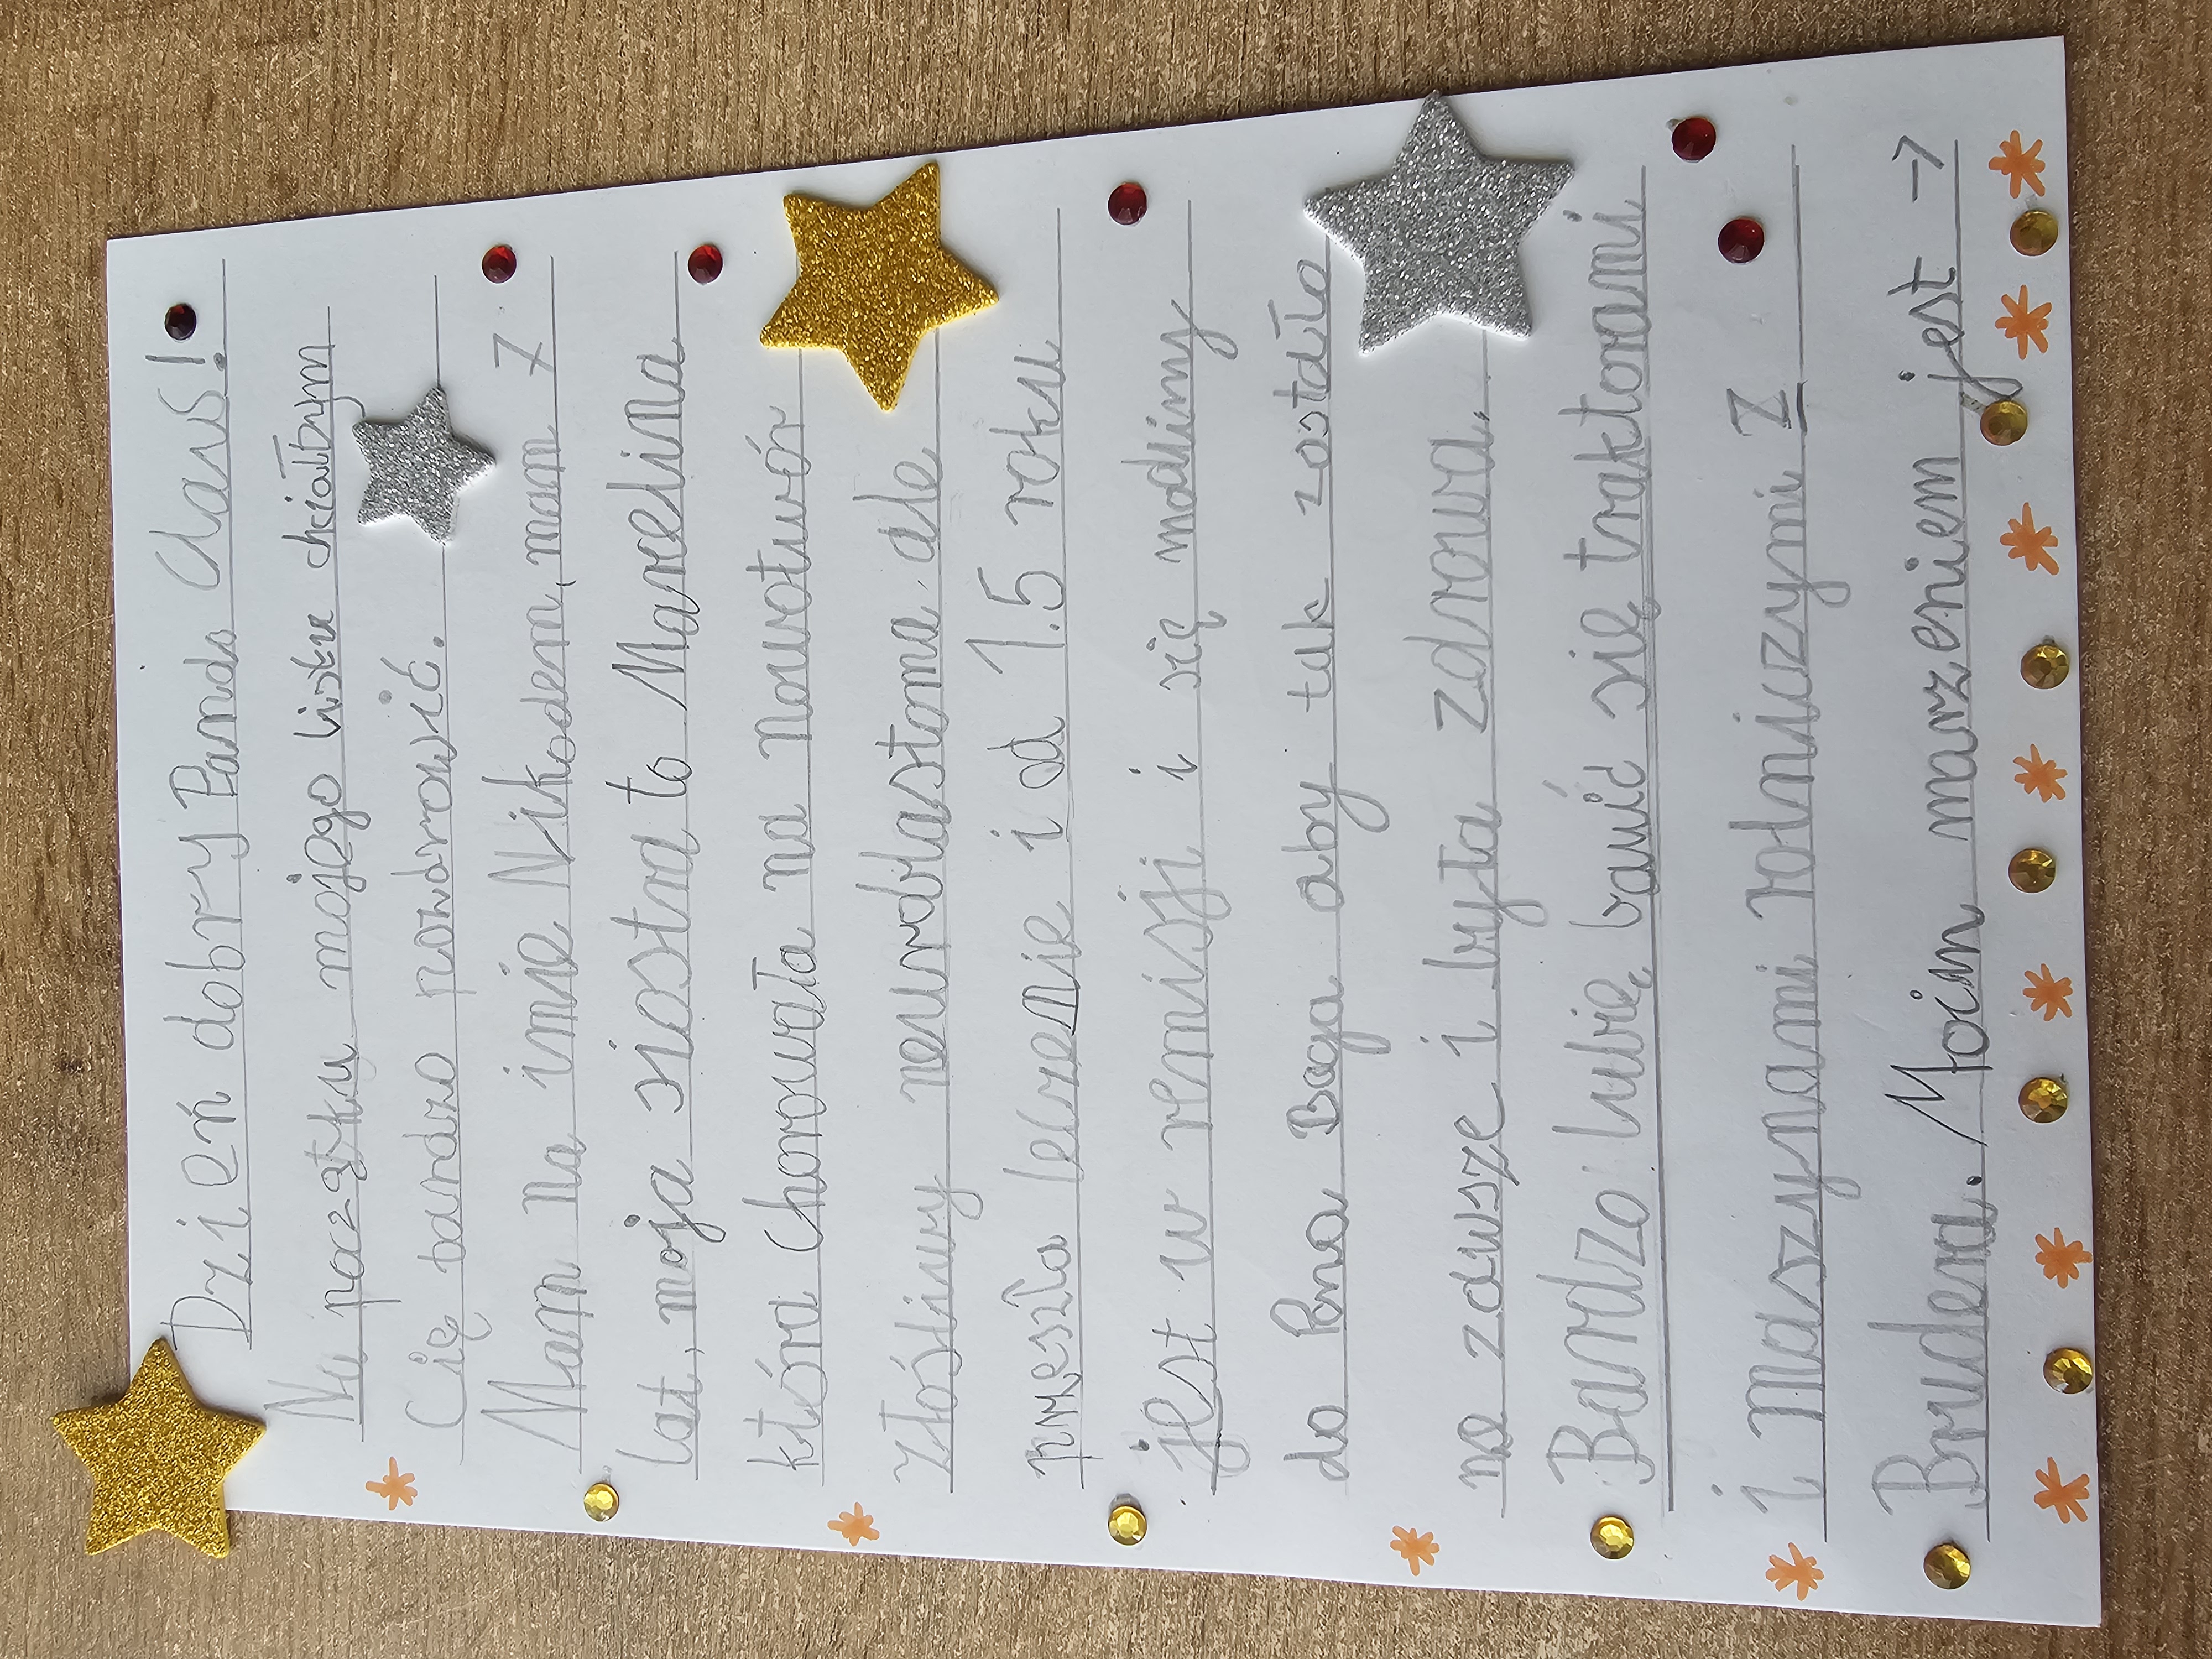 Dzień dobry Panda Claus!
Na początku mojego listu chciałbym
Cię bardzo pozdrowić.
Mam na imię Nikodem, mam 7
lat, moja siostra to Marcelina
która chorowała na nowotwór
złośliwy neuroblastoma, ale
przeszła leczenie i od 1.5 roku
jest w remisji i się modlimy
do Pana Boga aby tak zostało
na zawsze i była zdrowa.
Bardzo lubię bawić się traktorami
i maszynami rolniczymi z
Brudera. Moim marzeniem jest →